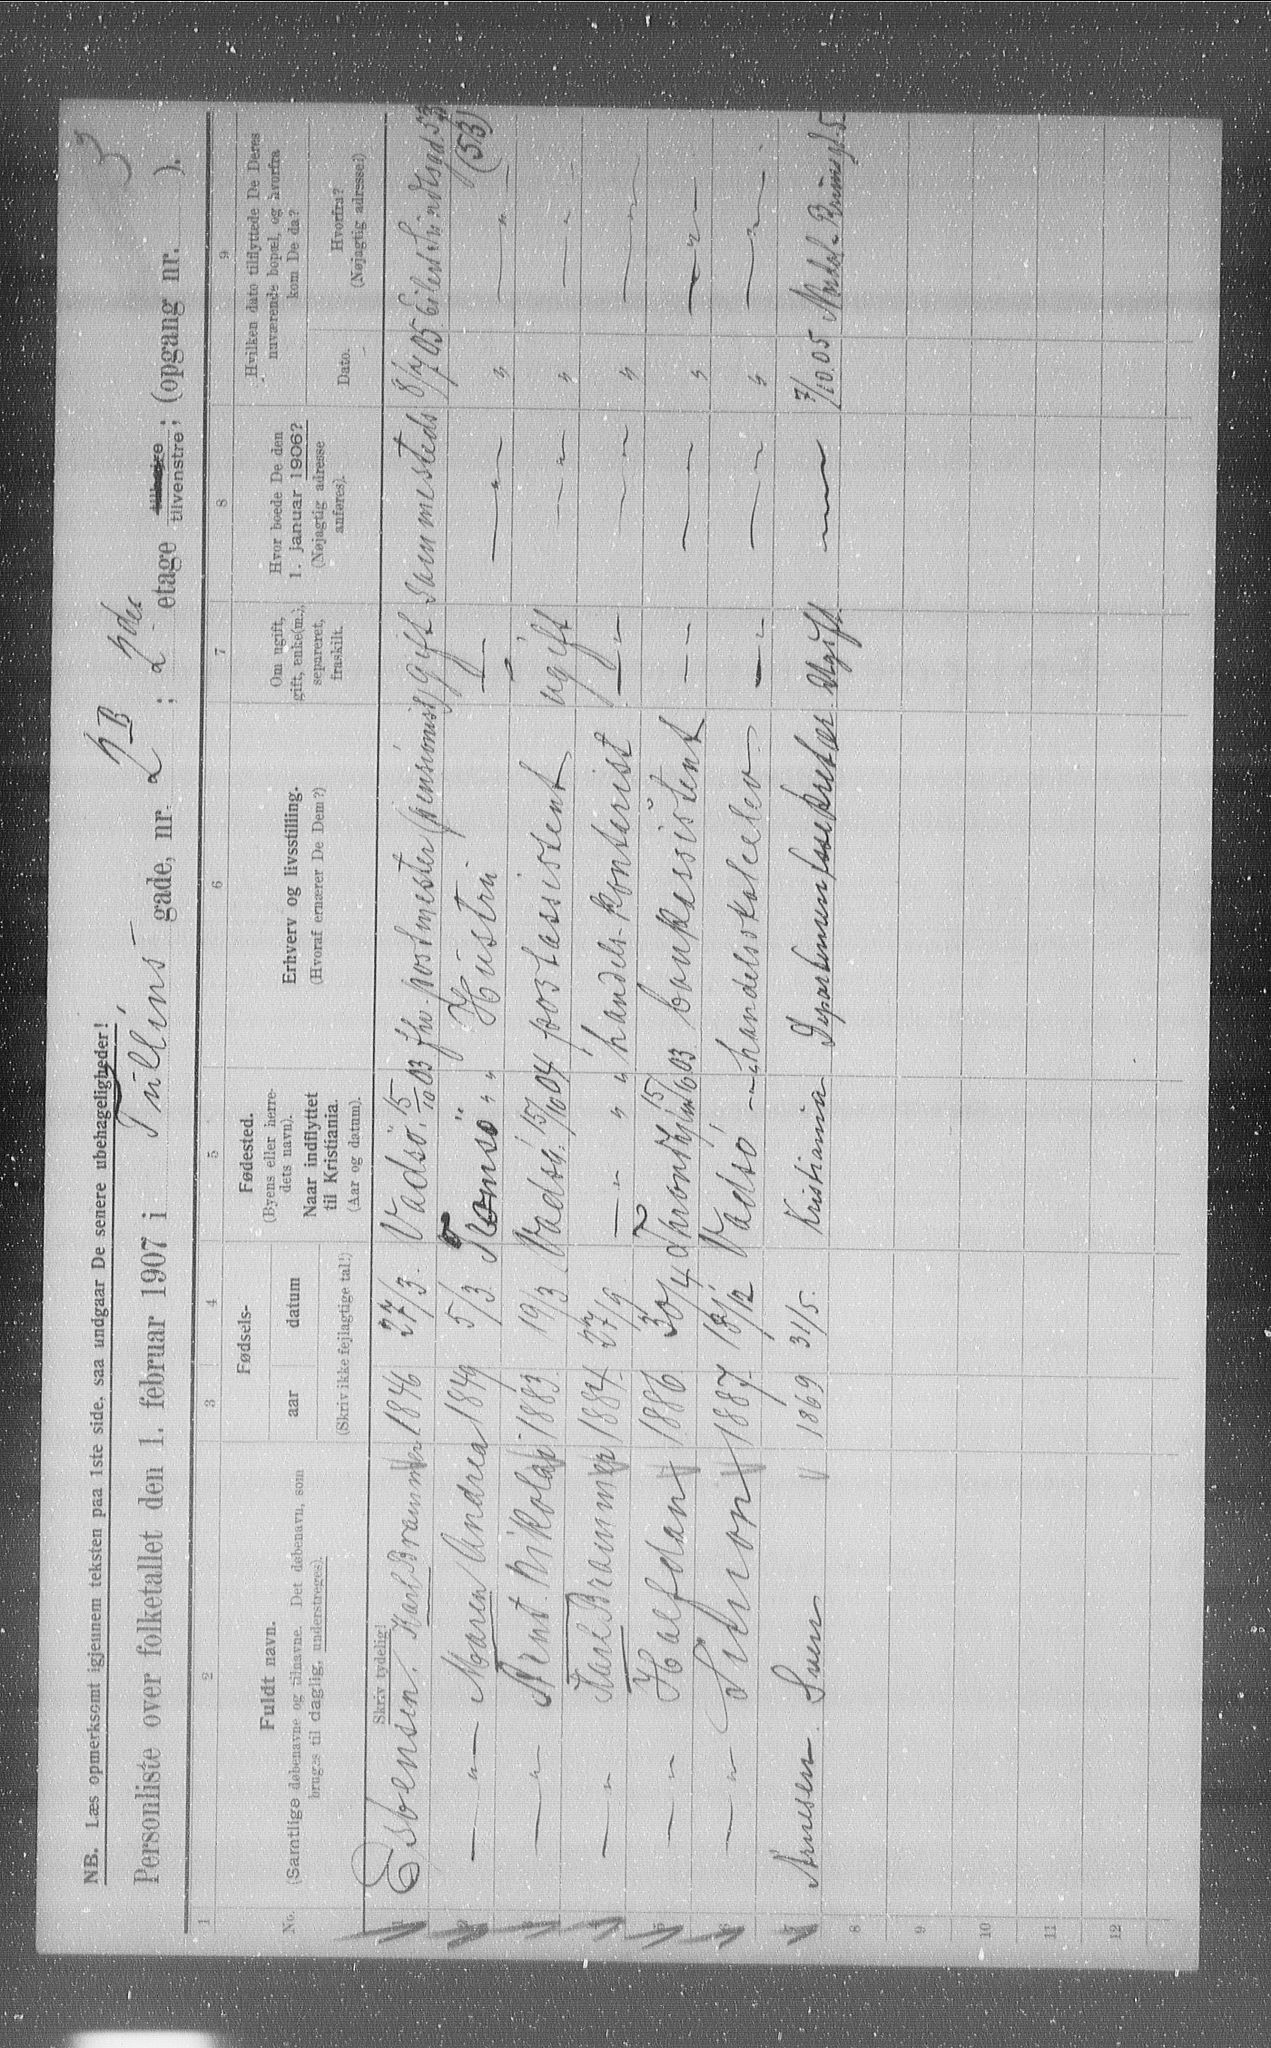 3
NB. Læs opmerksomt igjennem teksten paa 1ste side, saa undgaar De senere ubehageligheder!
Personliste over folketallet den 1. februar 1907 i Tullins gade, nr. 2 B ; 2den etage tilvenstre; (opgang nr. ).
1 2 3 4 5 6 7 8 9
No.
Fuldt navn.
(Samtlige døbenavne og tilnavne. Det døbenavn, som
bruges til daglig, understreges).
Skriv tydelig!
Fødsels-
aar datum
(Skriv ikke fejlagtige tal!)
Fødested.
(Byens eller herre-
dets navn).
Naar indflyttet
til Kristiania.
(Aar og datum).
Erhverv og livsstilling.
(Hvoraf ernærer De Dem?)
Om ugift,
gift, enke(m.),
separeret,
fraskilt.
Hvor boede De den
1. januar 1906?
(Nøjagtig adresse
anføres).
Hvilken dato tilflyttede De Deres
nuværende bopæl, og hvorfra
kom De da?
Dato.
Hvorfra?
(Nøjagtig adresse!)
1 Esbensen, Karl Brammer 1846 27/3. Vadsö. 15/10 03 fhv. postmester (pensionist) gift sammesteds 8/7 05 Eilert Sundtsgd 53 (53)
2 — " — Maren Andrea 1849 5/3 Tromsö " " Hustru — " — — " — " — " —
3 — " — Arent Nikolai 1883 19/3 Vadsö. 15/10 04 postassistent ugift — " — " — " —
4 — " — Karl Brammer 1884 27/9. — " — " " handels-kontorist — " — — " — " — " —
5 — " — Halfdan 1886 30/4 Trondhjem 15/6 03 bankassistent — — — — " — " —
6 — " — Simon 1887 18/12 Vadsö — " — handelsskoleelev — " — — " — " — " —
7 Arnesen. Sven 1869 31/5. Kristiania Departementssekretær Ugift — " — 7/10.05 Nordal Brunsgt. 5
8
9
10
11
12